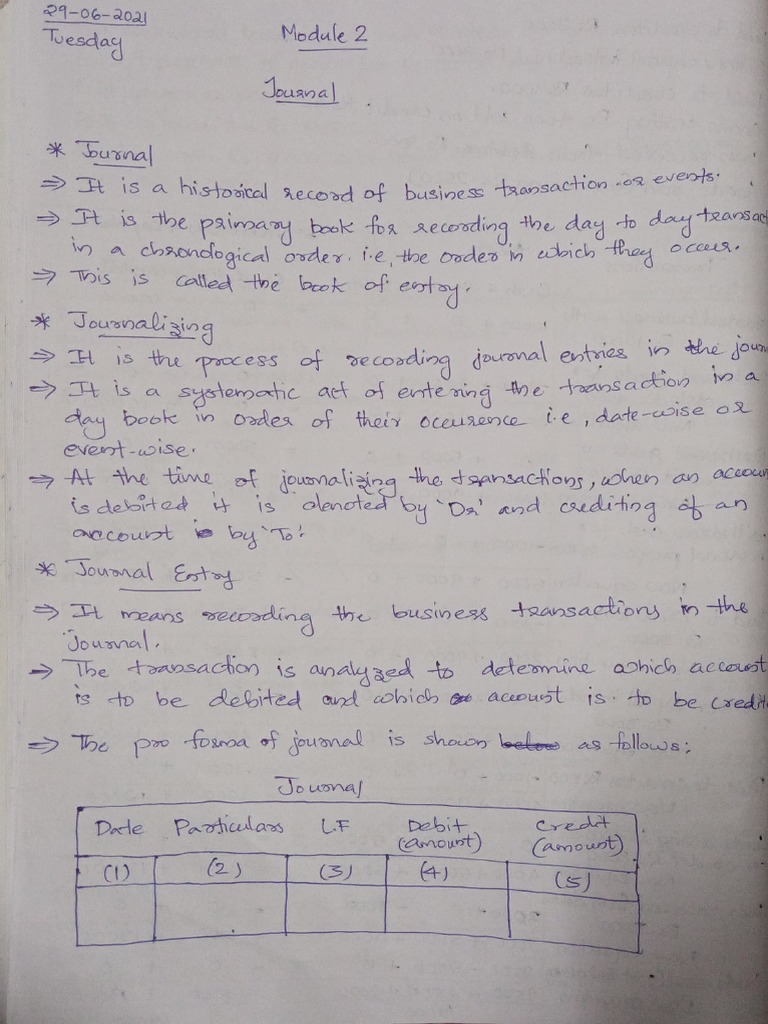 29-06-2021
Tuesday
Module 2
Journal
* Journal
⇒ It is a historical record of business transaction or events.
⇒ It is the primary book for recording the day to day transac
in a chronological order. i.e, the order in which they occur.
⇒ This is called the book of entry.
* Journalizing
⇒ It is the process of recording journal entries in the jour
⇒ It is a systematic act of entering the transaction in a
day book in order of their occurence i.e, date-wise or
event-wise.
⇒ At the time of journalizing the transactions, when an accoun
is debited it is denoted by 'Dr' and crediting of an
account is by 'To'.
* Journal Entry
⇒ It means recording the business transactions in the
Journal.
⇒ The transaction is analyzed to determine which account
is to be debited and which account is to be credit
⇒ The pro forma of journal is shown below as follows:
Journal
Date Particulars L.F Debit (amount) Credit (amount)
(1) (2) (3) (4) (5)